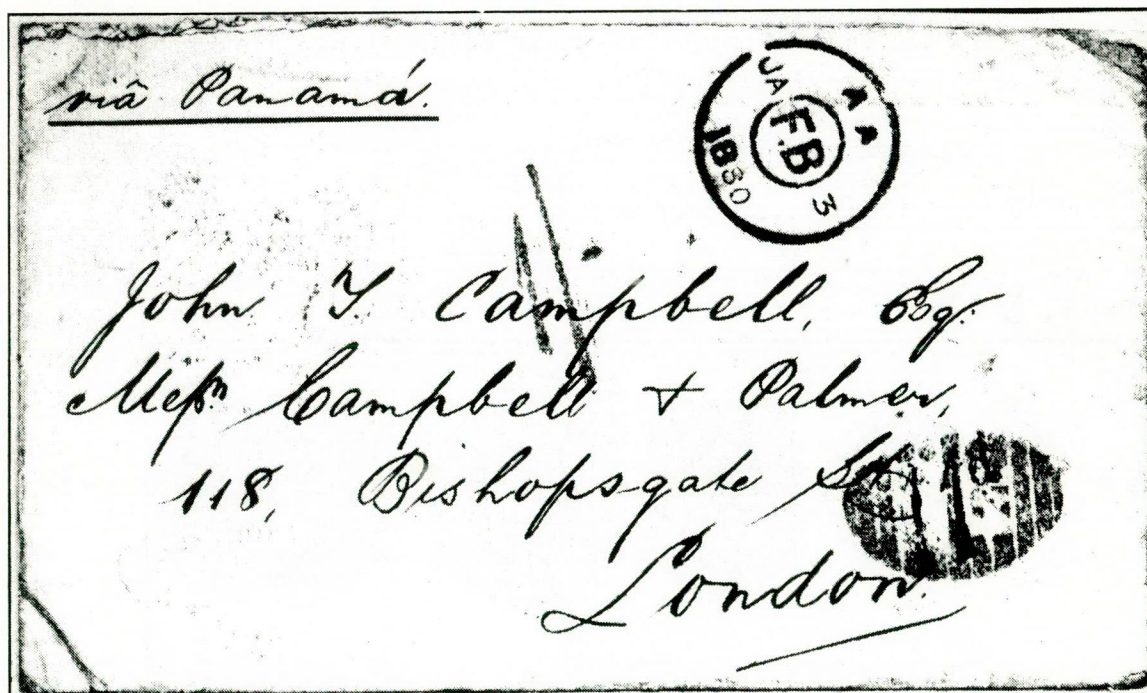 viâ Panamá.
A A
JA 3
F.B
1880
John T. Campbell, Esq.
Messrs Campbell + Palmer,
118, Bishopsgate St
London.